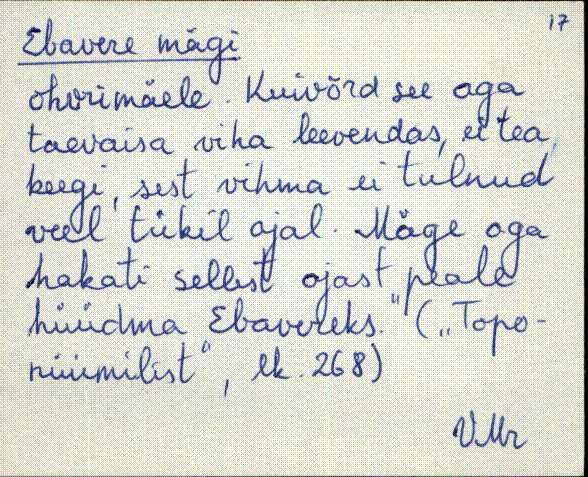 17
Ebavere mägi
ohvrimäele. Kuivõrd see aga
taevaisa viha leevendas, ei tea
keegi, sest vihma ei tulnud
veel tükil ajal. Mäge aga
hakati sellest ajast peale
hüüdma Ebavereks." („Topo-
nüümilist“, lk. 268)
VMr